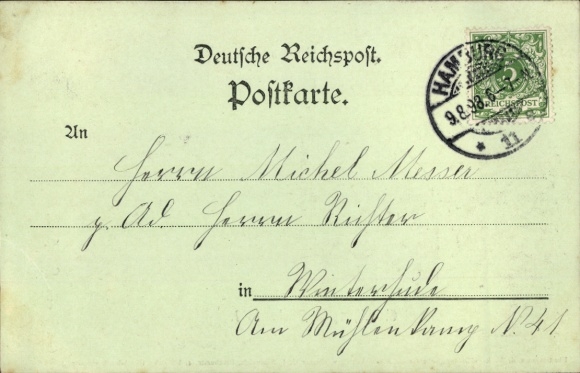 Deutsche Reichspost.
Postkarte.
HAMBURG
9.8.98.6-7
* 11
5
REICHSPOST
An
Herrn Michel Messer
p. Ad. Herrn Richter
in Winterhude
Am Mühlenkamp No. 41